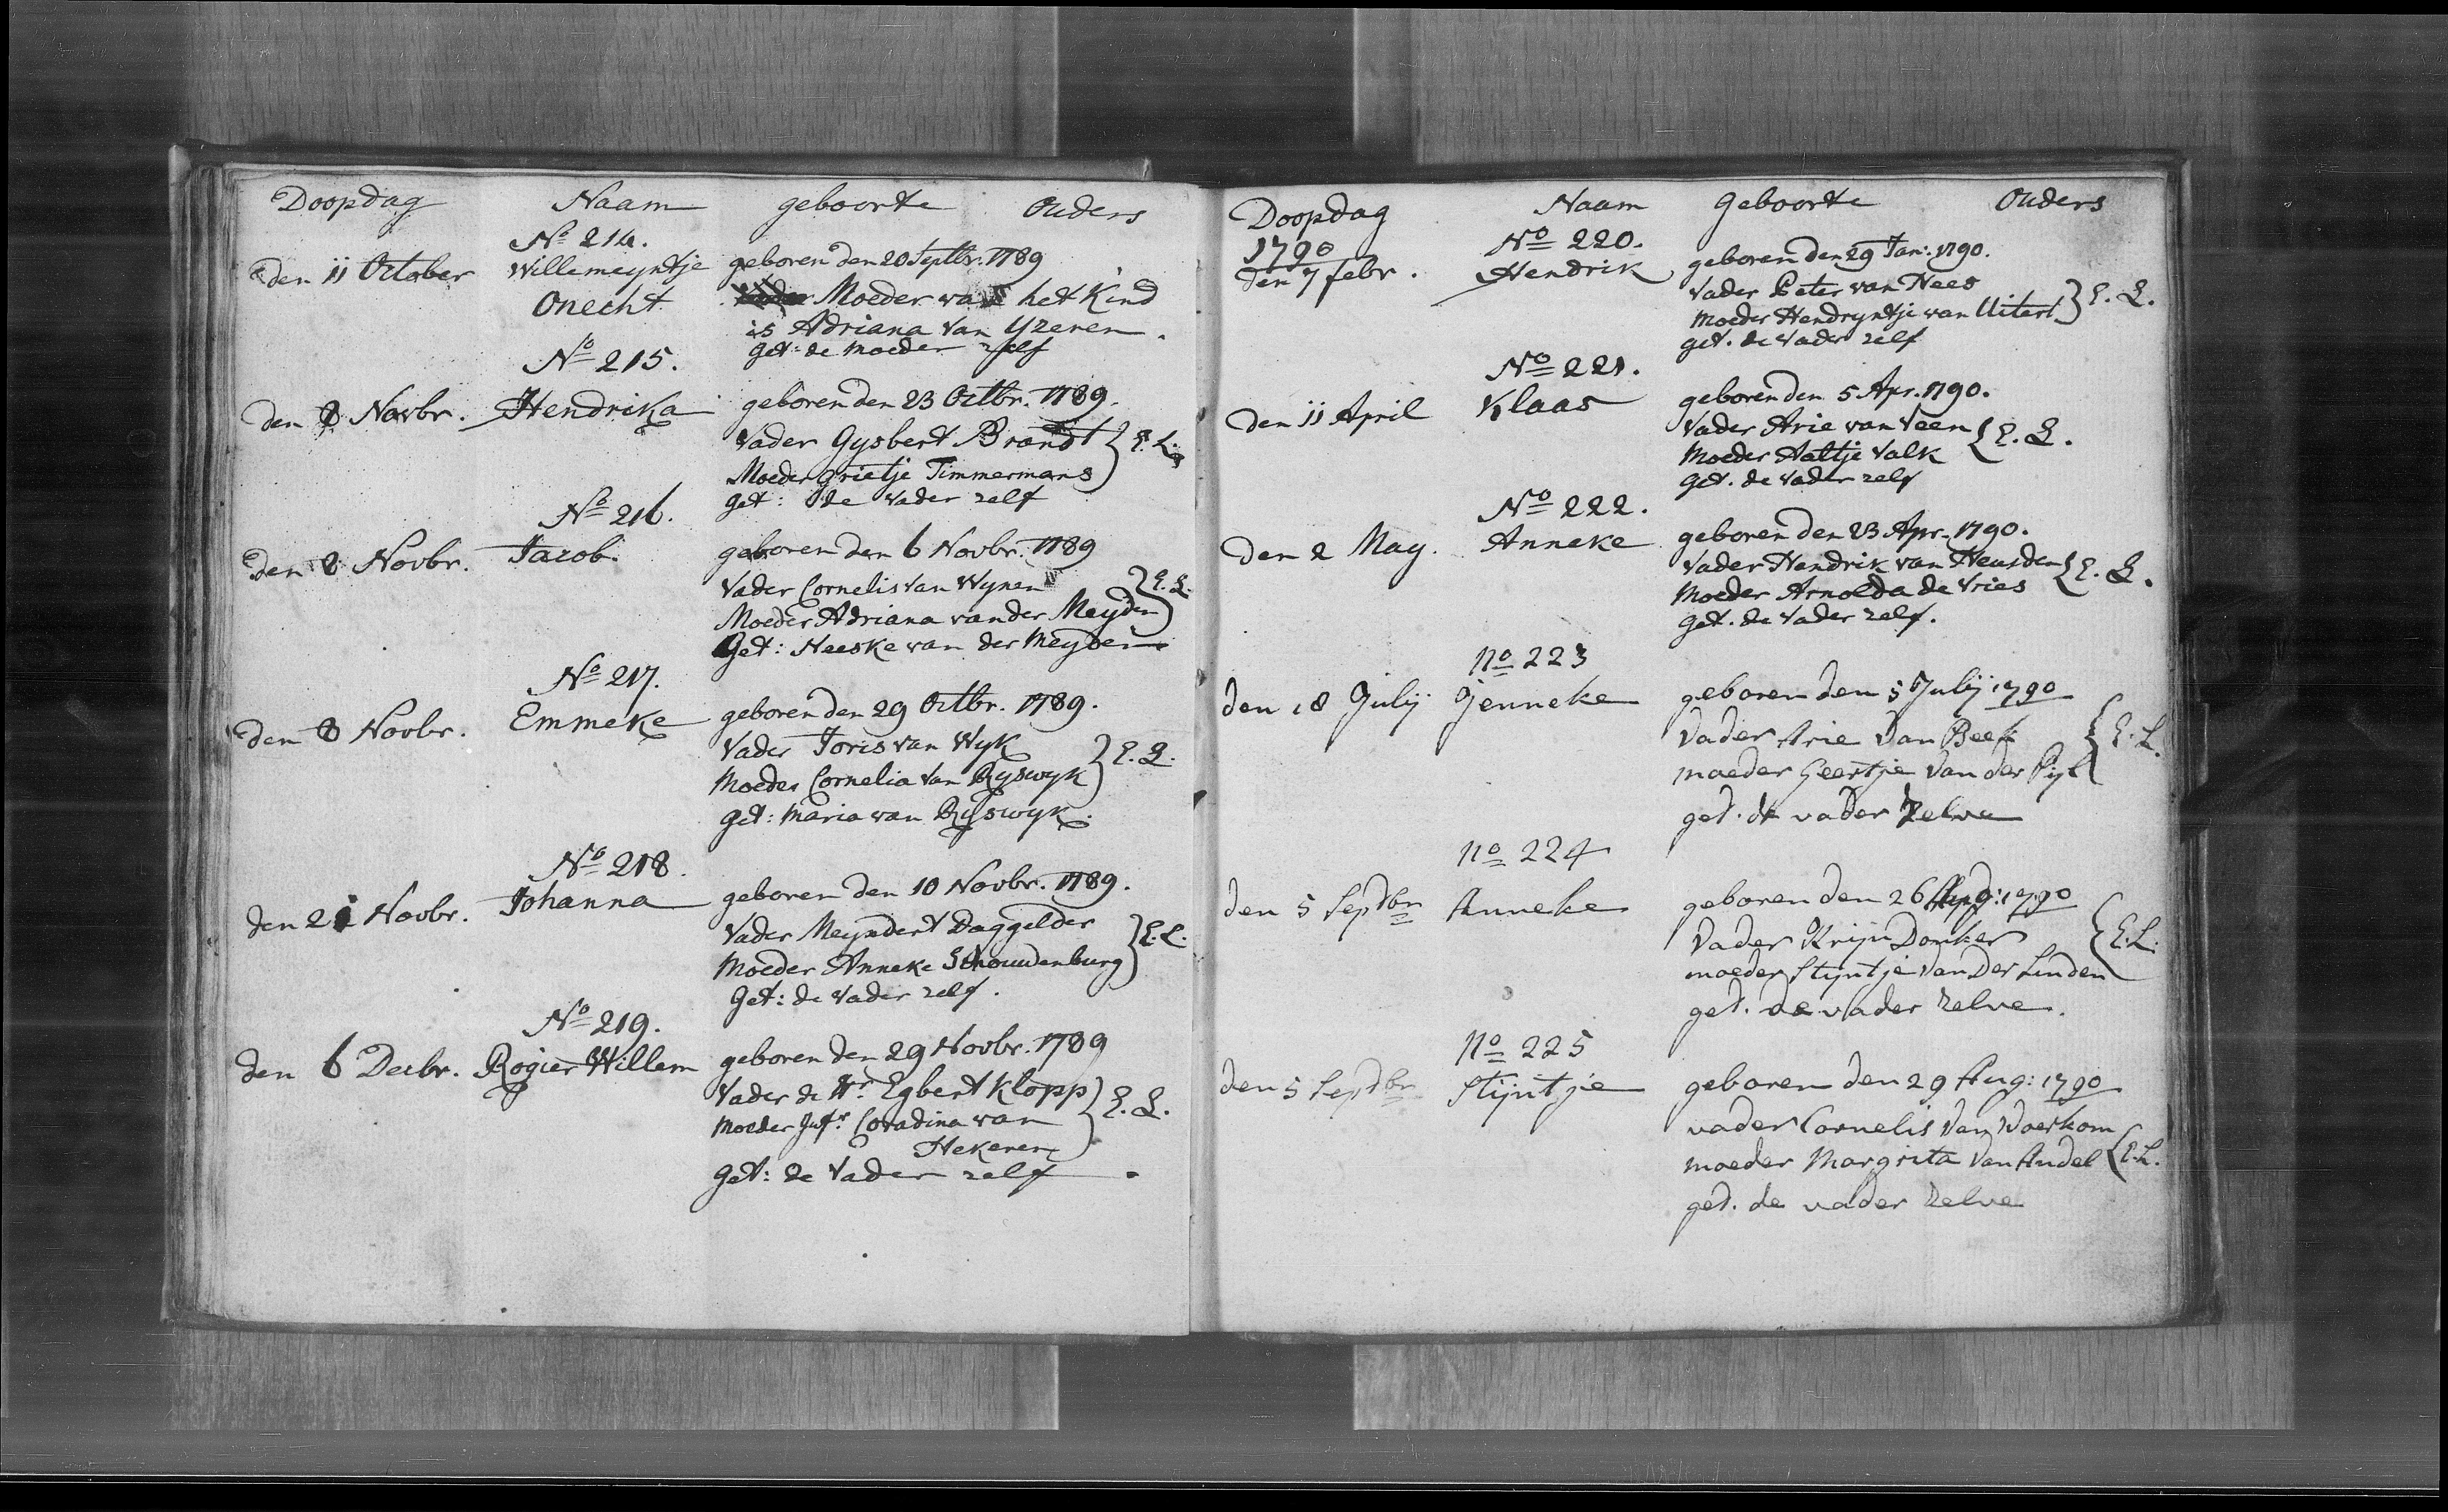 Doopdag Naam geboorte Ouders
No 214.
den 11 October Willemeyntje geboren den 20 Septbr. 1789
Onecht Moeder van het Kind
is Adriana van Yzeren.
get: de moeder zelf
No 215.
den 8 Novbr. Hendrika geboren den 23 Octbr. 1789.
Vader Gysbert Brandt } E. L.
Moeder Grietje Timmermans
get: de Vader zelf
No 216.
den 8 Novbr. Jacob. geboren den 6 Novbr. 1789
Vader Cornelis van Wynen } E. L.
Moeder Adriana van der Meyden
Get: Neeske van der Meyden
No 217.
den 8 Novbr. Emmeke geboren den 29 Octbr. 1789.
Vader Joris van Wyk } E. L.
Moeder Cornelia van Ryswyk
get: Maria van Ryswyk.
No 218.
den 21 Novbr. Johanna geboren den 10 Novbr. 1789.
Vader Meyndert Daggelder } E. L.
Moeder Anneke Schouwdenburg
Get: de Vader zelf.
No 219.
den 6 Decbr. Rogier Willem geboren den 29 Novbr. 1789
Vader de Hr. Egbert Klopp } E. L.
Moeder Jufr. Coradina van
Hekeren
Get: de Vader zelf
Doopdag Naam Geboorte Ouders
1790 No 220.
den 7 febr. Hendrik geboren den 29 Jan: 1790.
Vader Peter van Nees } E. L.
Moeder Hendryntje van Uitert
get. de Vader zelf
No 221.
den 11 April Klaas geboren den 5 Apr. 1790.
Vader Arie van Veen { E. L.
Moeder Aaltje Valk
Get. de Vader zelf
No 222.
den 2 May. Anneke geboren den 23 Apr. 1790.
Vader Hendrik van Heusden { E. L.
Moeder Arnolda de Vries
get. de Vader zelf.
no 223
den 18 Julij Jenneke geboren den 5 Julij 1790
Vader Arie van Beek { E. L.
moeder Geertje van der Pijl
get. de vader zelve
no 224
den 5 Septbr Anneke geboren den 26 Aug: 1790
Vader Krijn Donker { E. L.
moeder Stijntje van Der Linden
get. de vader zelve.
no 225
den 5 Septbr Stijntje geboren den 29 Aug: 1790
vader Cornelis van Woerkom
moeder Margrita van Andel { E. L.
get. de vader zelve